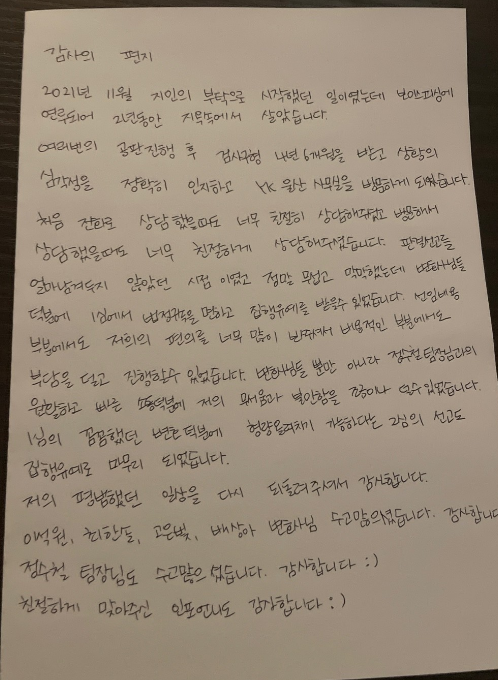 감사의 편지
2021년 11월 지인의 부탁으로 시작했던 일이였는데 보이스피싱에
연루되어 2년동안 지옥속에서 살았습니다.
여러번의 공판진행 후 검사구형 4년 6개월을 받고 상황의
심각성을 정확히 인지하고 YK 울산 사무실을 방문하게 되었습니다.
처음 전화로 상담했을때도 너무 친절히 상담해주셨고 방문해서
상담했을때도 너무 친절하게 상담해주셨습니다. 판결선고를
얼마남겨두지 않았던 시점 이였고 정말 무섭고 막막했는데 변호사님들
덕분에 1심에서 법정구속을 면하고 집행유예를 받을수 있었습니다. 선임비용
부분에서도 저희의 편의를 너무 많이 봐주셔서 비용적인 부분에서도
부담을 덜고 진행할수 있었습니다. 변호사님들 뿐만 아니라 정수철 팀장님과의
원활하고 빠른 소통덕분에 저의 무서움과 불안함을 조금이나 덜수있었습니다.
1심의 꼼꼼했던 변호 덕분에 형량을 유지하기 가능하다는 2심의 선고도
집행유예로 마무리 되었습니다.
저의 평범했던 일상을 다시 되돌려주셔서 감사합니다.
이석원, 최한솔, 고은빛, 배상아 변호사님 수고많으셨습니다. 감사합니다
정수철 팀장님도 수고많으셨습니다. 감사합니다 :)
친절하게 맞아주신 인포언니도 감사합니다 :)